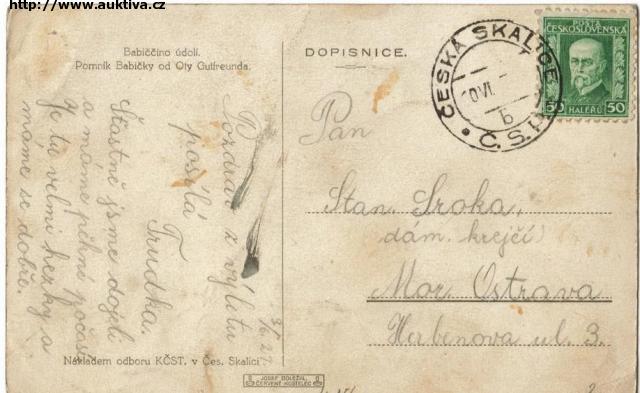 http://www.auktiva.cz
Babiččino údolí.
Pomník Babičky od Oty Gutfreunda.
DOPISNICE.
Šťastně jsme dojeli
a máme pěkné počasí
Je tu velmi hezky a
máme se dobře.
Pozdrav z výletu
posílá
Trudka.
Nákladem odboru KČST. v Čes. Skalici
JOSEF DOLEŽAL
ČERVENÝ KOSTELEC
POŠTA
ČESKOSLOVENSKÁ
50 50
HALÉŘŮ
ČESKÁ SKALICE
b
Č.S.P.
Pan
Stan. Sroka,
dám. krejčí
Mor. Ostrava
Herbenova ul. 3.